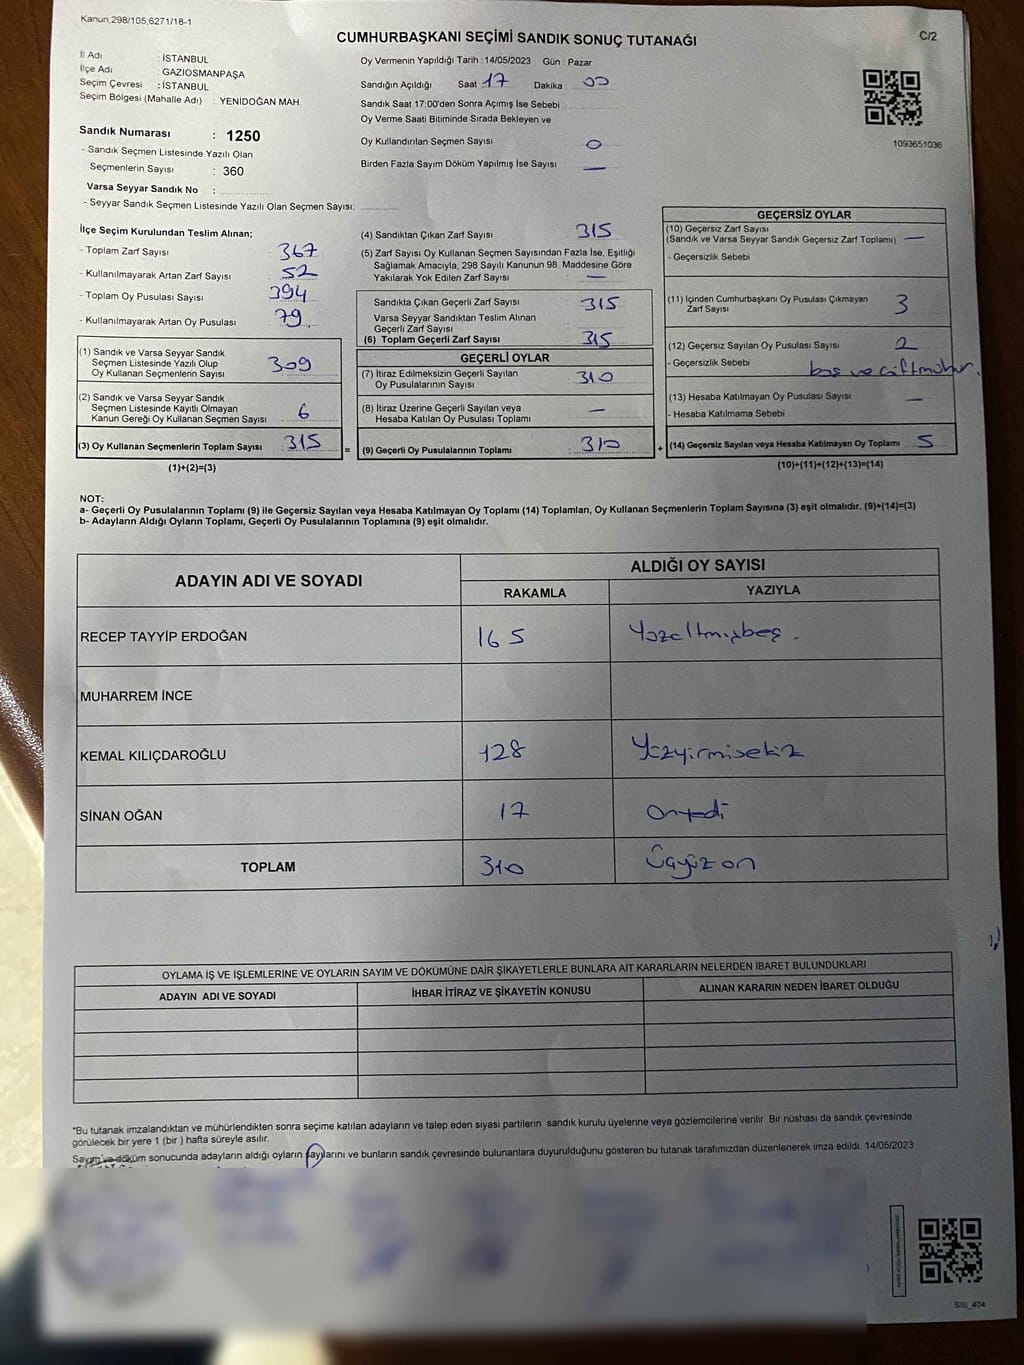 Kanun;298/105,6271/18-1
CUMHURBAŞKANI SEÇİMİ SANDIK SONUÇ TUTANAĞI
C/2
İl Adı : İSTANBUL
İlçe Adı : GAZİOSMANPAŞA
Seçim Çevresi : İSTANBUL
Seçim Bölgesi (Mahalle Adı) : YENİDOĞAN MAH.
Oy Vermenin Yapıldığı Tarih : 14/05/2023 Gün : Pazar
Sandığın Açıldığı Saat 17 Dakika 00
Sandık Saat 17:00'den Sonra Açımış İse Sebebi
Oy Verme Saati Bitiminde Sırada Bekleyen ve
Oy Kullandırılan Seçmen Sayısı 0
Birden Fazla Sayım Döküm Yapılmış İse Sayısı —
1093651036
Sandık Numarası : 1250
- Sandık Seçmen Listesinde Yazılı Olan
Seçmenlerin Sayısı : 360
Varsa Seyyar Sandık No :
- Seyyar Sandık Seçmen Listesinde Yazılı Olan Seçmen Sayısı:
İlçe Seçim Kurulundan Teslim Alınan;
- Toplam Zarf Sayısı : 367
- Kullanılmayarak Artan Zarf Sayısı : 52
- Toplam Oy Pusulası Sayısı : 394
- Kullanılmayarak Artan Oy Pusulası : 79
(1) Sandık ve Varsa Seyyar Sandık
Seçmen Listesinde Yazılı Olup
Oy Kullanan Seçmenlerin Sayısı : 309
(2) Sandık ve Varsa Seyyar Sandık
Seçmen Listesinde Kayıtlı Olmayan
Kanun Gereği Oy Kullanan Seçmen Sayısı : 6
(3) Oy Kullanan Seçmenlerin Toplam Sayısı : 315
(1)+(2)=(3)
(4) Sandıktan Çıkan Zarf Sayısı : 315
(5) Zarf Sayısı Oy Kullanan Seçmen Sayısından Fazla İse, Eşitliği
Sağlamak Amacıyla, 298 Sayılı Kanunun 98. Maddesine Göre
Yakılarak Yok Edilen Zarf Sayısı : —
Sandıkta Çıkan Geçerli Zarf Sayısı : 315
Varsa Seyyar Sandıktan Teslim Alınan
Geçerli Zarf Sayısı :
(6) Toplam Geçerli Zarf Sayısı : 315
GEÇERLİ OYLAR
(7) İtiraz Edilmeksizin Geçerli Sayılan
Oy Pusulalarının Sayısı : 310
(8) İtiraz Üzerine Geçerli Sayılan veya
Hesaba Katılan Oy Pusulası Toplamı : —
= (9) Geçerli Oy Pusulalarının Toplamı : 310
GEÇERSİZ OYLAR
(10) Geçersiz Zarf Sayısı
(Sandık ve Varsa Seyyar Sandık Geçersiz Zarf Toplamı) —
- Geçersizlik Sebebi
(11) İçinden Cumhurbaşkanı Oy Pusulası Çıkmayan
Zarf Sayısı 3
(12) Geçersiz Sayılan Oy Pusulası Sayısı : 2
- Geçersizlik Sebebi boş ve çiftmühür.
(13) Hesaba Katılmayan Oy Pusulası Sayısı : —
- Hesaba Katılmama Sebebi
+ (14) Geçersiz Sayılan veya Hesaba Katılmayan Oy Toplamı 5
(10)+(11)+(12)+(13)=(14)
NOT:
a- Geçerli Oy Pusulalarının Toplamı (9) ile Geçersiz Sayılan veya Hesaba Katılmayan Oy Toplamı (14) Toplamları, Oy Kullanan Seçmenlerin Toplam Sayısına (3) eşit olmalıdır. (9)+(14)=(3)
b- Adayların Aldığı Oyların Toplamı, Geçerli Oy Pusulalarının Toplamına (9) eşit olmalıdır.
ADAYIN ADI VE SOYADI
ALDIĞI OY SAYISI
RAKAMLA YAZIYLA
RECEP TAYYİP ERDOĞAN 165 Yüzaltmışbeş.
MUHARREM İNCE
KEMAL KILIÇDAROĞLU 128 Yüzyirmisekiz
SİNAN OĞAN 17 Onyedi
TOPLAM 310 Üçyüzon
OYLAMA İŞ VE İŞLEMLERİNE VE OYLARIN SAYIM VE DÖKÜMÜNE DAİR ŞİKAYETLERLE BUNLARA AİT KARARLARIN NELERDEN İBARET BULUNDUKLARI
ADAYIN ADI VE SOYADI İHBAR İTİRAZ VE ŞİKAYETİN KONUSU ALINAN KARARIN NEDEN İBARET OLDUĞU
*Bu tutanak imzalandıktan ve mühürlendikten sonra seçime katılan adayların ve talep eden siyasi partilerin sandık kurulu üyelerine veya gözlemcilerine verilir. Bir nüshası da sandık çevresinde
görülecek bir yere 1 (bir ) hafta süreyle asılır.
Sayım ve döküm sonucunda adayların aldığı oyların sayılarını ve bunların sandık çevresinde bulunanlara duyurulduğunu gösteren bu tutanak tarafımızdan düzenlenerek imza edildi. 14/05/2023
SSI_404